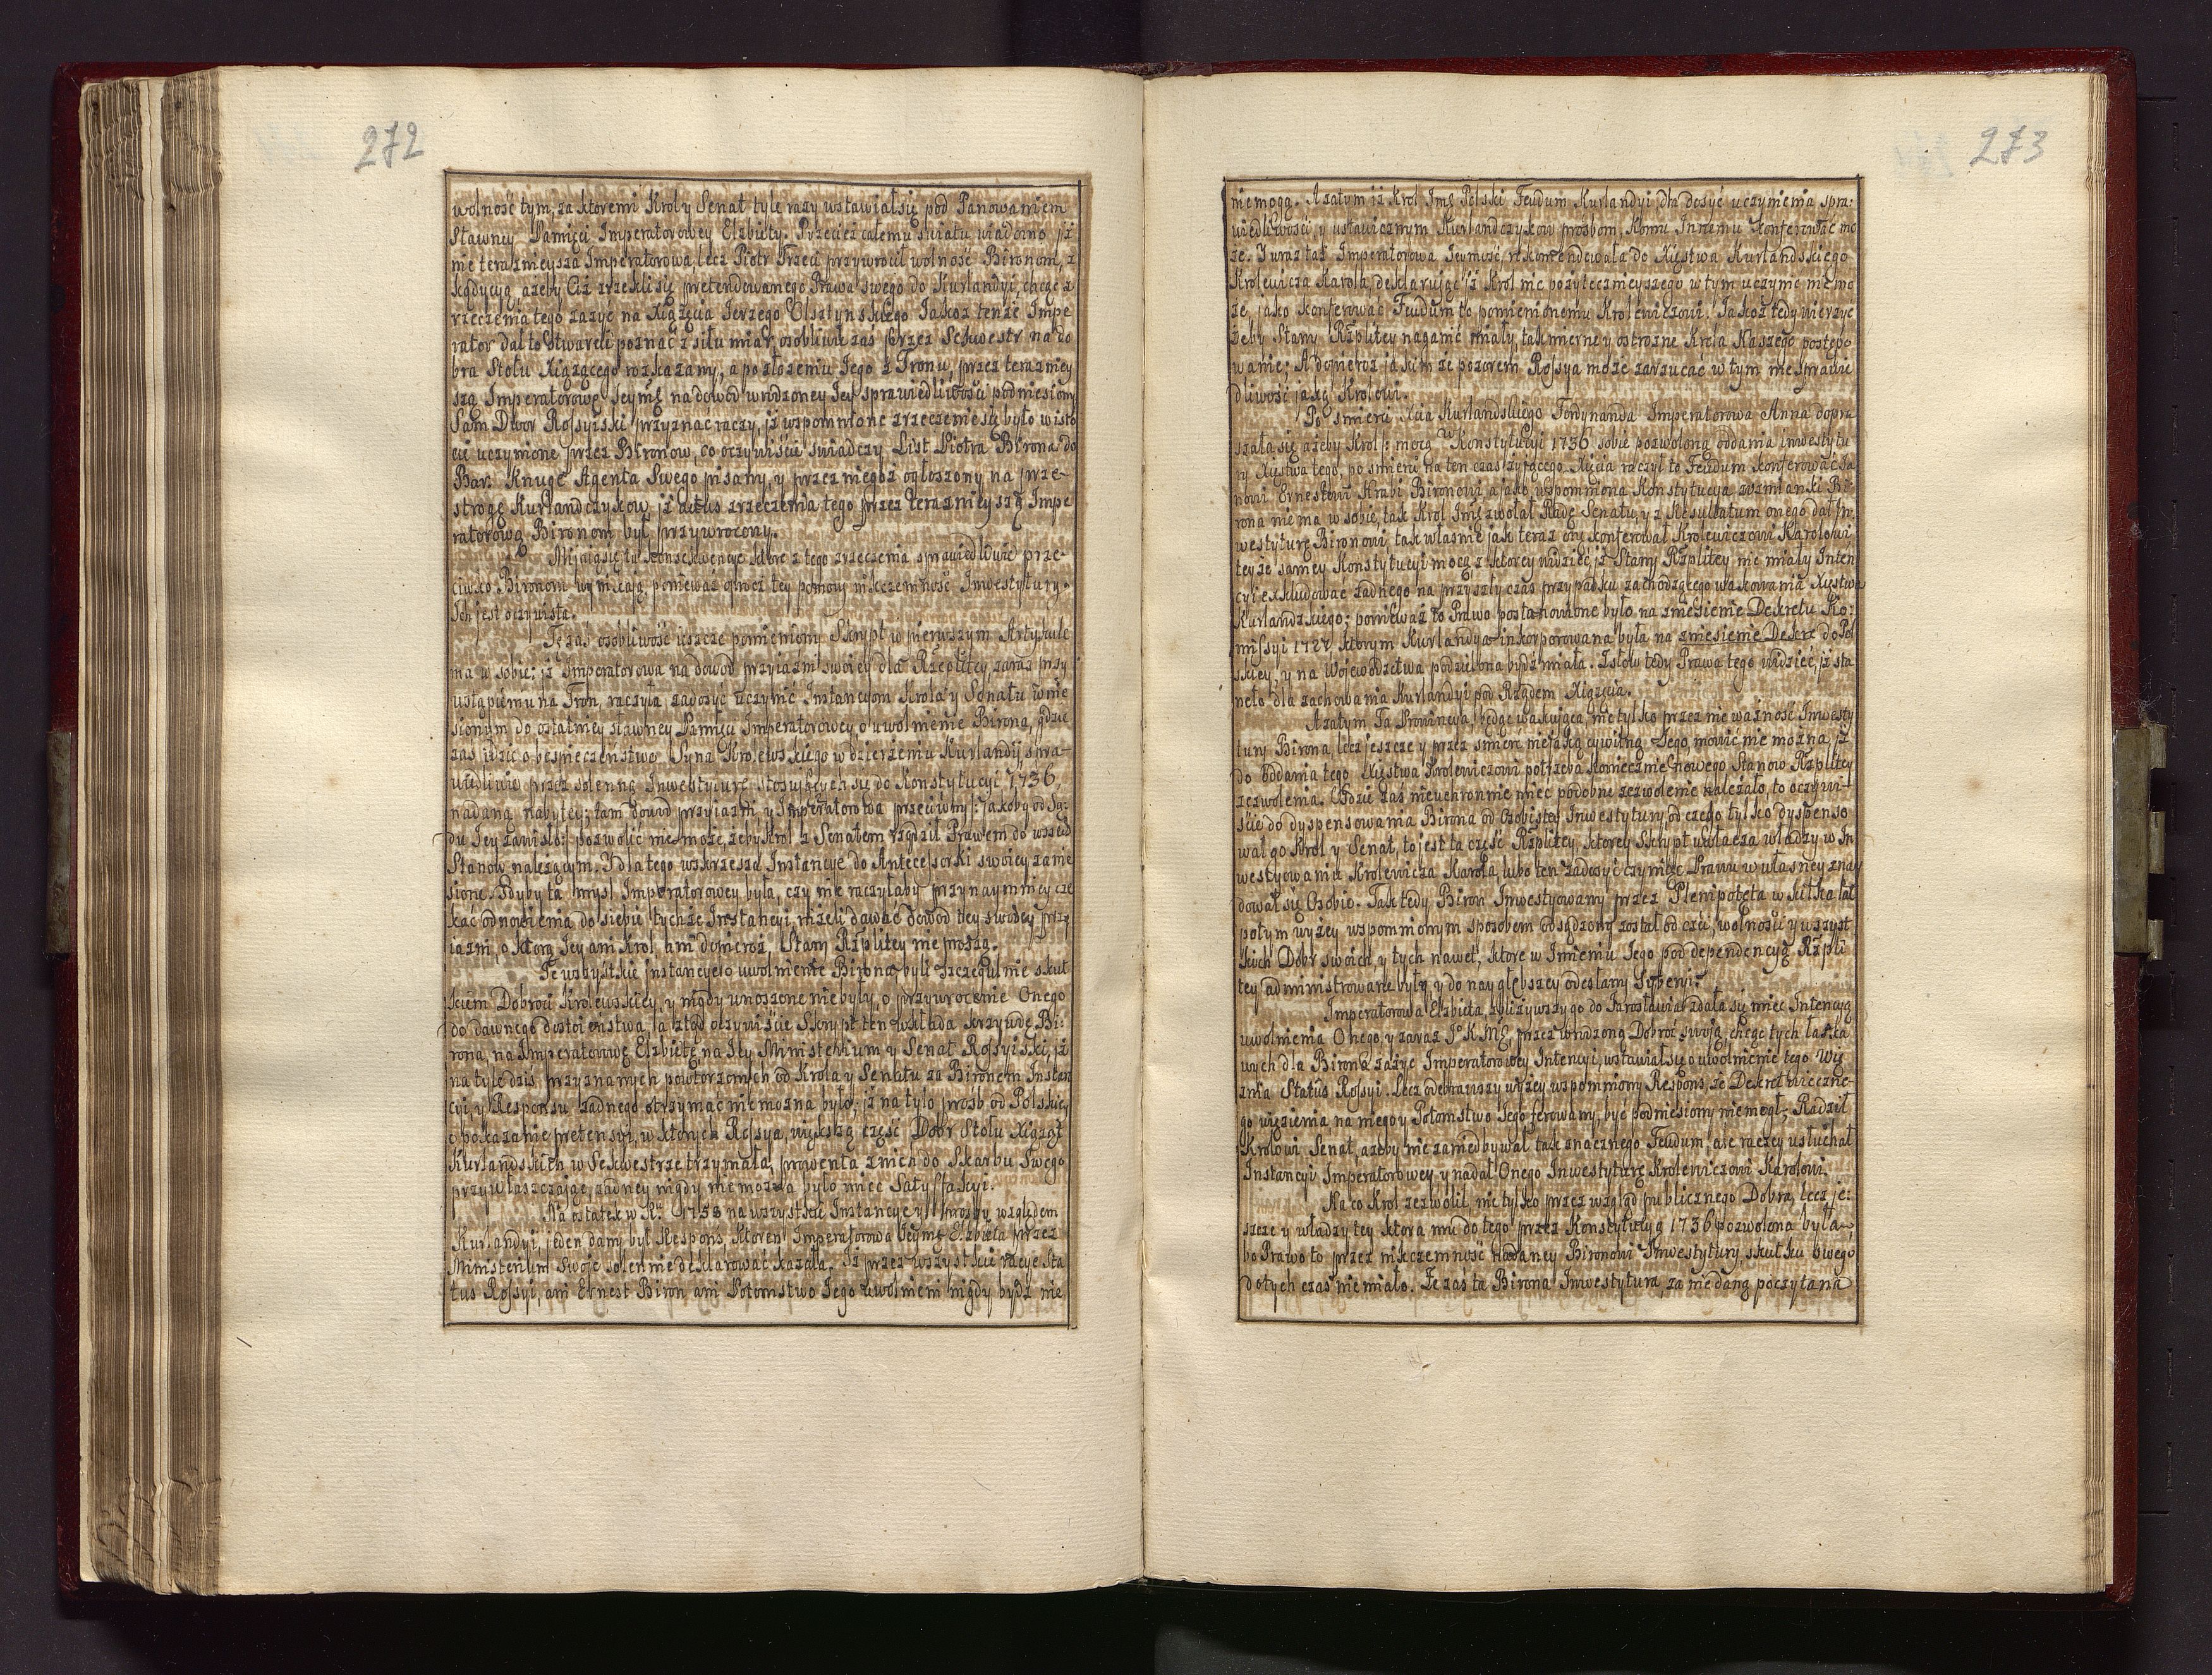 272
wolność tym, za ktoremi Krol y Senat tyle razy wstawiał się pod Panowaniem
Sławney Pamięci Imperatorowey Elzbiety. Przecież całemu światu wiadomo iż
nie teraznieysza Imperatorowa, lecz Piotr Trzeci przywrocił wolność Bironom, z
kądycyą, ażeby Ciż zrzekli się pretendowanego Prawa swego do Kurlandyi, chcąc z
rzeczenia tego zażyć na Xiążęcia Jerzego Olsztynskiego Jakoż tenże Impe
rator dał to otwarcie poznać z siłu miar, osobliwie zaś przez Sekwestr na do
bra Stołu Xiążęcego rozkazany, a po złożeniu Jego z Tronu, przez terazniey
szą Imperatorowę Jeymć na dowód wrodzoney Jey sprawiedliwości podniesiony
Sam Dwor Rossyiski przyznać raczy, iż wspomnione zrzeczenie się było w isto
cie uczynione przez Bironow, co oczywiście świadczy List Piotra Birona do
Bar. Knuge Agenta Swego pisany, y przez niegoż ogłoszony na prze-
strogę Kurlandczykow, iż aktus zrzeczenia tego przez teraznieyszą Impe
ratorową Bironom był przywrocony.
Mijaią się tu konsekwencye, ktore z tego zrzeczenia sprawiedliwie prze-
ciwko Bironom wynikaią, ponieważ oprocz tey pomocy nikczemność Inwestytury
Ich jest oczywista.
Tęzaś osobliwość ieszcze pomieniony Skrypt w pierwszym Artykule
ma w sobie; iż Imperatorowa na dowod przyiazni swoiey dla Rzeplitey, zaraz przy
wstąpieniu na Tron, raczyła zadosyć uczynić Instancyom Krola y Senatu wnie
sionym do ostatniey sławney Pamięci Imperatorowey o uwolnienie Birona, gdzie
zaś idzie o bespieczeństwo Syna Krolewskiego w dzierżeniu Kurlandyi, spra-
wiedliwie przez solenną Inwestyturę stosuiących się do Konstytucyi 1736,
nadaną nabytey; tam dowod przyiazni y Imperatorowa przeciwny: jakoby od Są-
du Jey zawisło: pozwolić nie może, żeby Krol z Senatem rządził Prawem do wszech
Stanow należącym. Y dla tego wskrzesza Instancye do Antecessorki swoiey zanie
sione. Gdyby ta mysl Imperatorowey była, czy nie raczyłaby przynaymniey cze
kać odnowienia do siebie tychże Instancyi, niżeli dawać dowod tey swoiey przy
iazni, o ktorą Jey ani Krol, ani donieroż, Stany Rzplitey nie proszą.
Te wszystkie instancye o uwolnienie Birona, byli szczegulnie skut
kiem Dobroci Krolewskiey, y nigdy wnoszone nie były, o przywrocenie Onego
do dawnego dostoieństwa, a ztąd oczywiście Skrypt ten wkłada krzywdę Bi-
rona, na Imperatorowę Elzbietę, na Jey Ministerium y Senat Rossyiski, iż
na tyle dziś przyznanych powtorzonych od Krola y Senatu za Bironem Instan
cyi, y Responsu żadnego otrzymać nie można było; iż na tylo prosb od Polskiey
o pokazanie pretensyi, w ktorych Rossya, większą część Dobr Stołu Xiążąt
Kurlandskich w Sekwestrze trzymała, prowenta z nich do Skarbu Swego
przywłaszczaiąc, żadney nigdy nie można było mieć Satysfakcyi.
Na ostatek w Ru 1758 na wszystkie Instancye y prosby względem
Kurlandyi, jeden dany był Respons, ktoren Imperatorowa Jeymć Elzbieta przez
Ministerium Swoje solennie deklarować kazała. Iż przez wszystkie racye Sta
tus Rossyi, ani Ernest Biron ani Potomstwo Jego uwolnieni nigdy bydź nie
273
niemogą. A zatym iż Krol Jmć Polski Feudum Kurlandyi dla dosyć uczynienia spra-
wiedliwości, y ustawicznym Kurlandczykow prosbom, komu Innemu konferować mo
że. Y uraz taż Imperatorowa Jeymość, rekomendowała do Xięstwa Kurlandskiego
Krolewicza Karola, deklaruiąc iż Krol nic pożytecznieyszego w tym uczynić nie mo
że, jako konferować Feudum to pomienionemu Krolewiczowi. Jakoż tedy wierzyć
żeby Stany Rzplitey naganić miały, tak mierne y ostrożne Krola Naszego postępo
wanie; A dopieroż jakimże pozorem Rossya może zarzucać w tym niesprawie
dliwość jaką Krolowi.
Po śmierci Xcia Kurlandskiego Ferdynanda Imperatorowa Anna dopra
szała się ażeby Krol /: mocą w Konstytucyi 1736 sobie pozwoloną oddania inwestytu
ry Xięstwa tego, po smierci na ten czas żyiącego Xięcia raczył to Feudum konferować Ja
nowi Ernestowi Hrabi Bironowi, a jako wspomniona Konstytucya, wzmianki Bi-
rona nie ma w sobie, tak Krol Jmć zwołał Radę Senatu, y z Resultatum onego dał In-
westyturę Bironowi, tak własnie jak teraz onę konferował Krolewiczowi Karolowi
teyże samey Konstytucyi mocą, z ktorey widzieć, iż Stany Rzplitey nie miały Inten
cyi exkludować żadnego na przyszły czas przypadku zachodzącego wakowania Xięstwa
Kurlandzkiego; ponieważ to Prawo postanowione było na zniesienie Dekretu Ko-
missyi 1727 ktorym Kurlandya inkorporowana była na zniesienie Dekre do Pol
skiey, y na Woiewodztwa podzielona bydź miała. Z słow tedy Prawa tego widzieć, iż sta
neło dla zachowania Kurlandyi pod Rządem Xiążęcia.
A zatym Ta Prowincya, będąc wakuiąca, nie tylko przez nie ważność Inwesty
tury Birona, lecz jeszcze y przez smierć niejaką cywilną Jego, mowić nie można, iż
do oddania tego Xięstwa Krolewiczowi potrzeba koniecznie nowego Stanow Rzplitey
zezwolenia. Gdzie zaś nieuchronnie mieć podobne zezwolenie należało, to oczywi-
ście do dyspensowania Birona od Osobistey Inwestytury, od czego tylko dyspenso
wał go Krol y Senat, to jest ta część Rzplitey, ktorey Skrypt uwłacza władzy w In
westyowaniu Krolewicza Karola, lubo ten zadosyć czyniąc Prawu w własney znay
dował się Osobie. Tak tedy Biron Inwestyowany przez Plenipotęta w kilka lat
potym wyżey wspomnionym sposobem odsądzony został od czci, wolności y wszyst
kich Dobr swoich, y tych nawet, ktore w Imieniu Jego pod dependencyą Rzpli
tey administrowane były, y do nay głębszey odesłany Syberyi.
Imperatorowa Elzbieta, zbliżywszy go do Jarosławia zdała się mieć Intencyą
uwolnienia Onego, y zaraz Jo K. Mć, przez wrodzoną Dobroć swoją, chcąc tych łaska
wych dla Birona zażyć Imperatorowey Intencyi, wstawiał się o uwolnienie tego Wię
znia Status Rossyi. Lecz odebrawszy wyżey wspomniony Respons, że Dekret wieczne-
go więzienia na niego y Potomstwo Jego ferowany, być podniesiony nie mogł; Radził
Krolowi Senat, ażeby nie zaniedbywał tak znacznego Feudum, ale raczey usłuchał
Instancyi Imperatorowey y nadał Onego Inwestyturę Krolewiczowi Karolowi.
Na co Krol zezwolił nie tylko przez wzgląd publicznego Dobra, lecz je-
szcze y władzy tey ktora mu do tego przez Konstytucyą 1736 pozwolona była,
bo Prawo to przez nikczemność nadaney Bironowi Inwestytury, skutku swego
dotych czas nie miało. Że zaś ta Birona Inwestytura, za nie daną poczytana